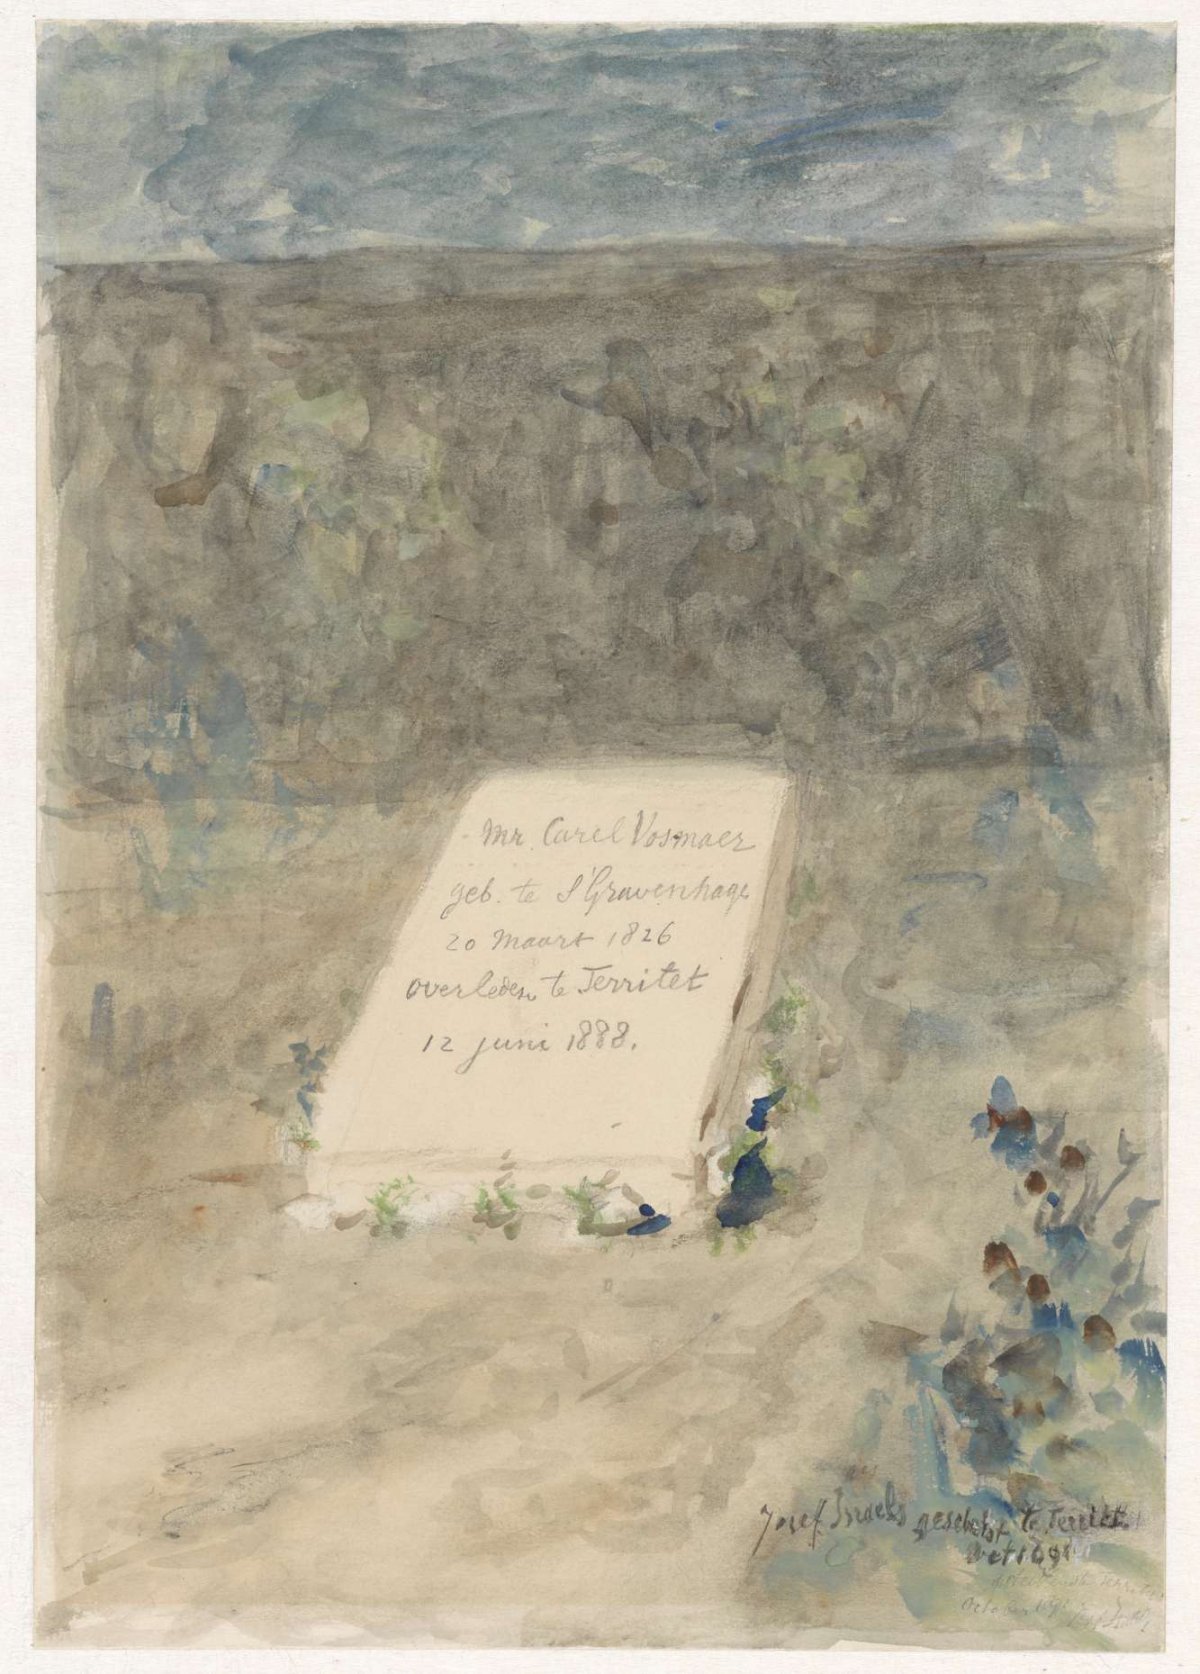 Mr. Carel Vosmaer
geb. te S'Gravenhage
20 Maart 1826
overleden te Territet
12 juni 1888.
Josef Israels geschetst te Territet
Oct 1891
October